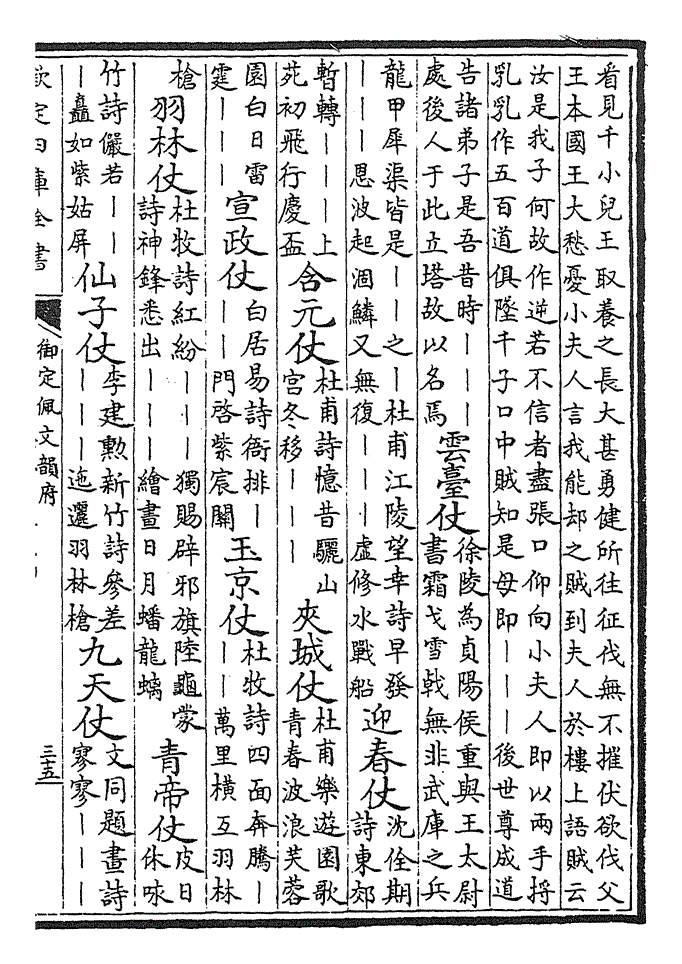 看見千小兒王取養之長大甚勇健所往征伐無不摧伏欲伐父
王本國王大愁憂小夫人言我能却之賊到夫人於樓上語賊云
汝是我子何故作逆若不信者盡張口仰向小夫人即以兩手捋
乳乳作五百道俱墜千子口中賊知是母即丨丨丨後世尊成道
告諸弟子是吾昔時丨丨丨
處後人于此立塔故以名焉
雲臺仗
徐陵為貞陽侯重與王太尉
書霜戈雪戟無非武庫之兵
龍甲犀渠皆是丨丨之丨杜甫江陵望幸詩早發
丨丨丨恩波起涸鱗又無復丨丨丨虛修水戰船
迎春仗
沈佺期
詩東郊
暫轉丨丨丨上
苑初飛行慶盃
含元仗
杜甫詩憶昔驪山
宮冬移丨丨丨
夾城仗
杜甫樂遊園歌
青春波浪芙蓉
園白日雷
霆丨丨丨
宣政仗
白居易詩衙排丨
丨丨門啓紫宸關
玉京仗
杜牧詩四面奔騰丨
丨丨萬里橫互羽林
槍
羽林仗
杜牧詩紅紛丨丨丨獨賜辟邪旗陸龜蒙
詩神鋒悉出丨丨丨繪畫日月蟠龍螭
青帝仗
皮日
休咏
竹詩儼若丨丨
丨矗如紫姑屏
仙子仗
李建勲新竹詩參差
丨丨丨迤邐羽林槍
九天仗
文同題畫詩
寥寥丨丨丨
欽定四庫全書
御定佩文韻府
三十五